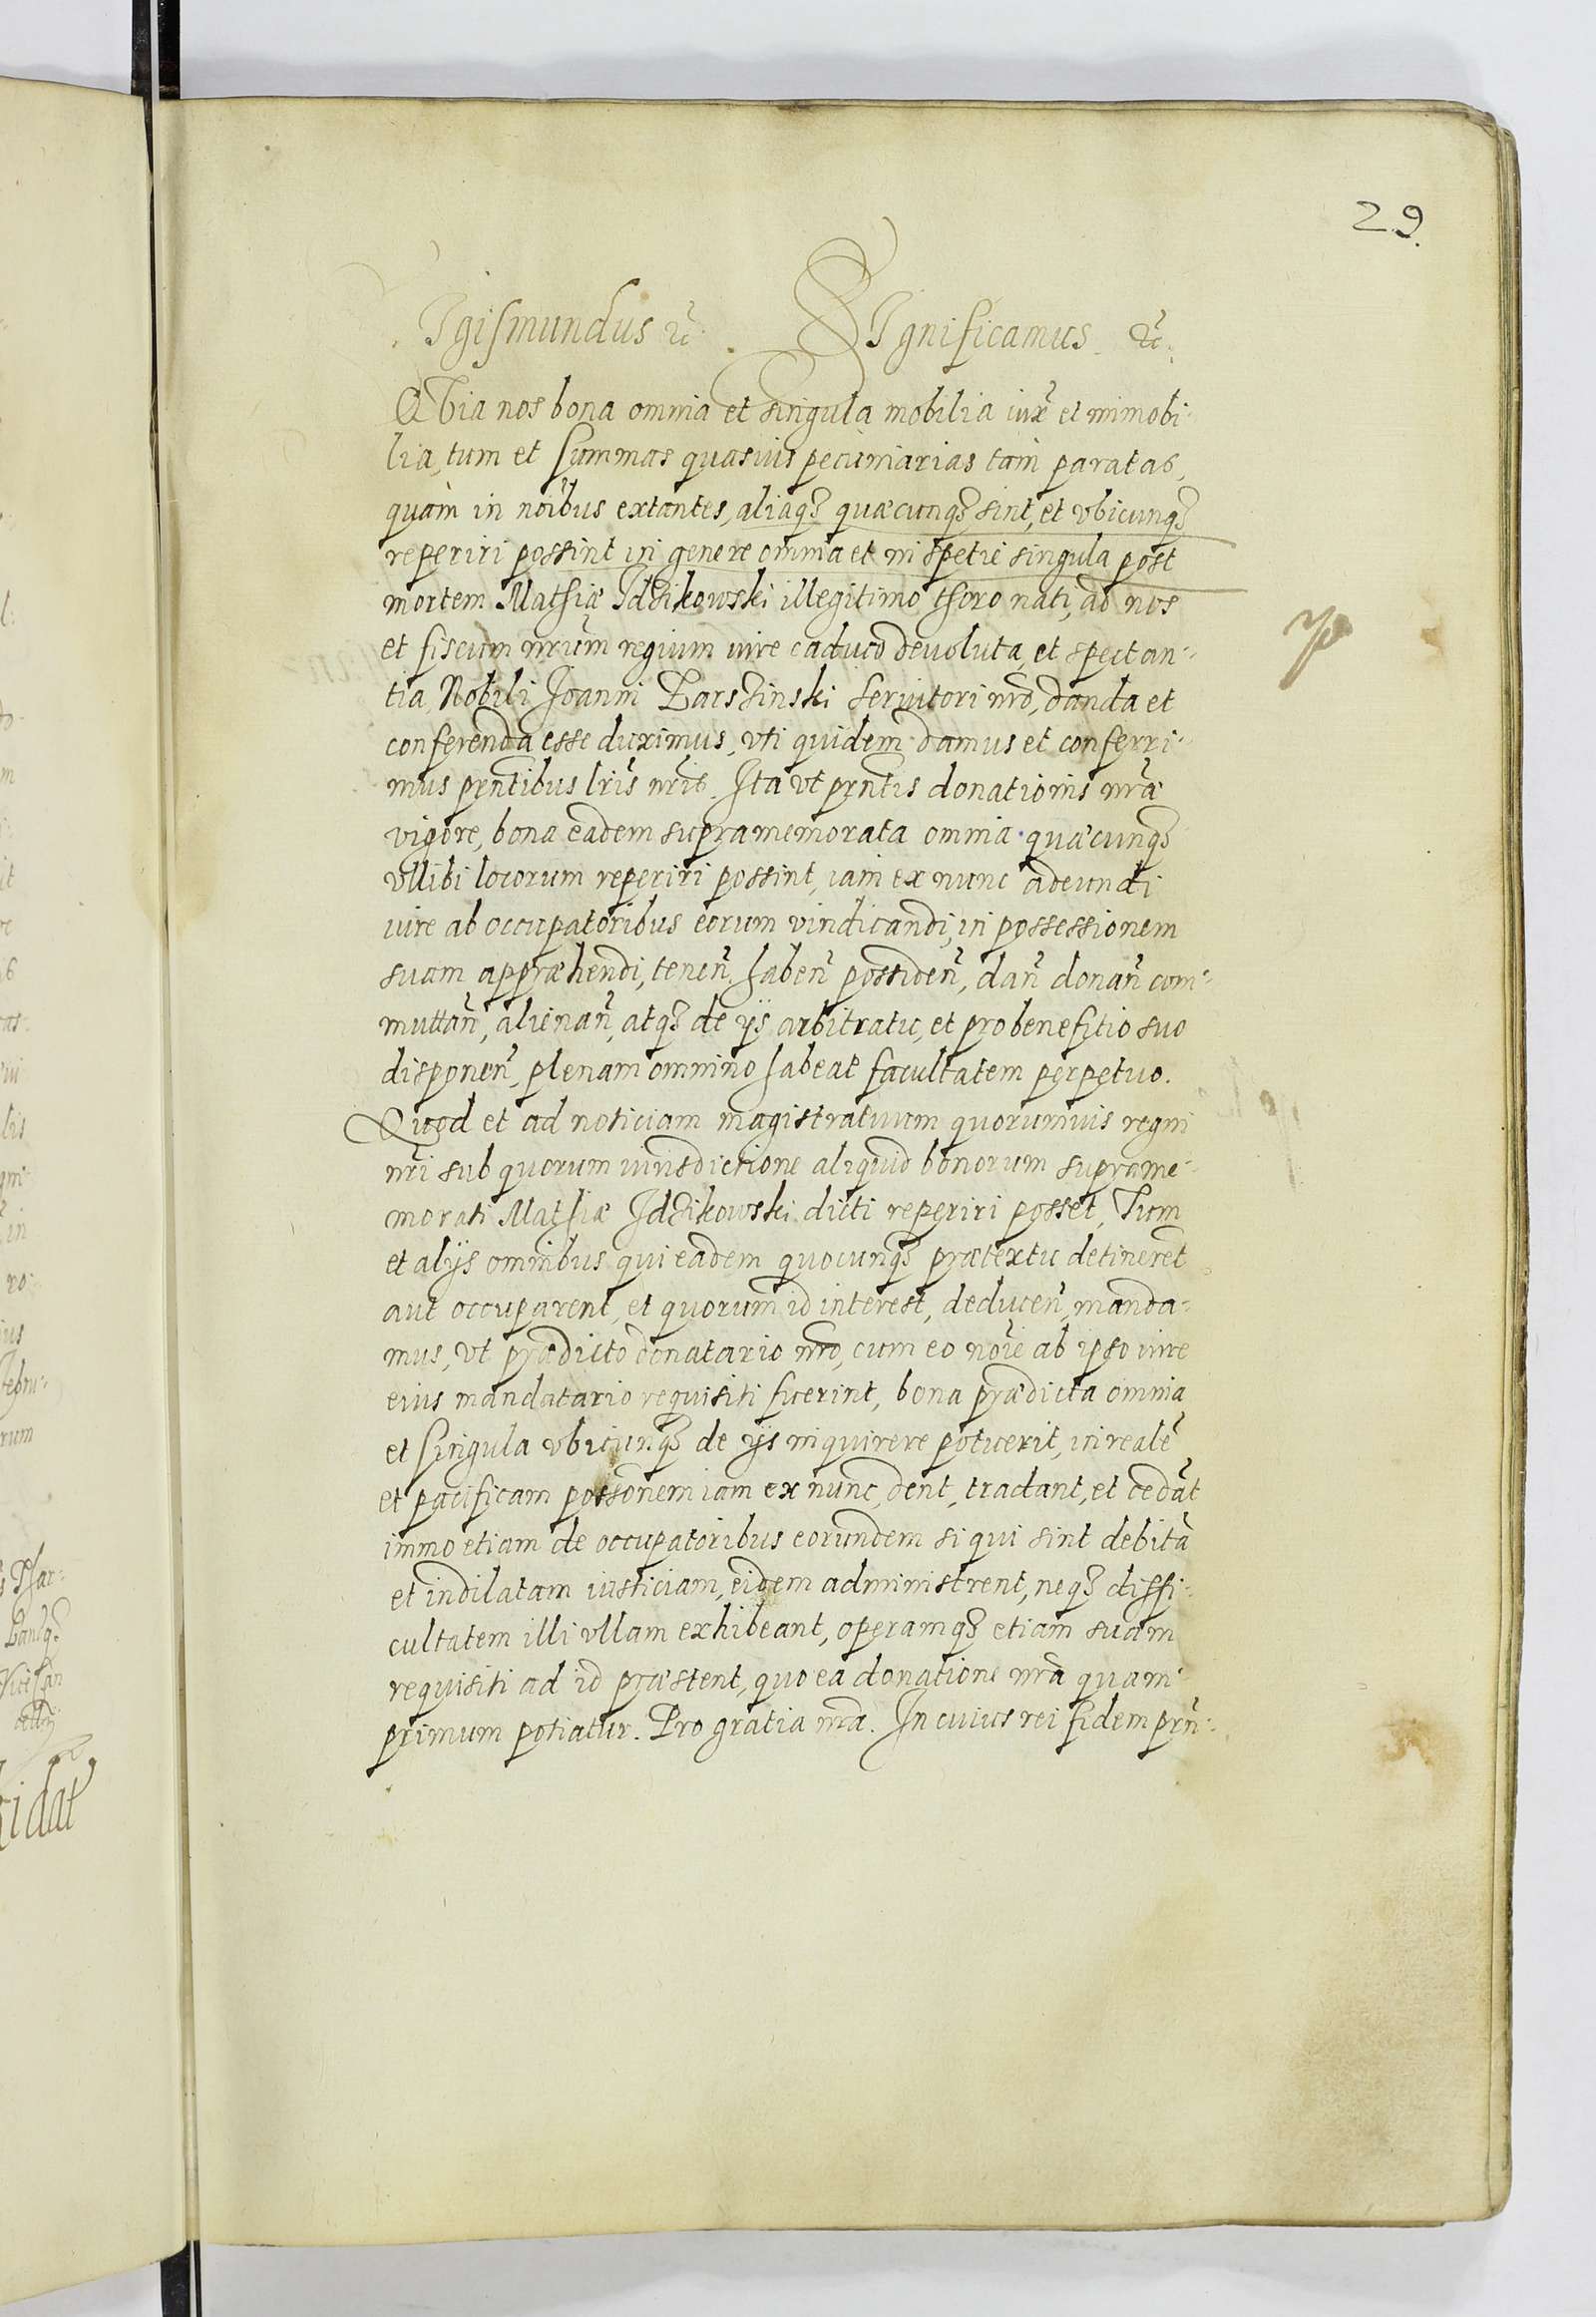 29.
Igismundus etc. SIgnificamus etc.
QVia nos bona omnia et singula mobilia iux̃ et immobi-
lia, tum et summas quasuis pecuniarias tam paratas,
quam in noĩbus extantes, aliaqȝ quæcunqȝ sint, et vbicunqȝ
reperiri possint in genere omnia et in spetie singula post
mortem Mathiæ Idzikowski illegitimo thoro nati, ad nos
et fiscum nr̃um regium iure caduco deuoluta, et spectan-
tia, Nobili Joanni Barszinski seruitori nr̃o, danda et
conferenda esse duximus, vti quidem damus et conferri-
mus pr̃ntibus lr̃is nr̃is. Ita vt pr̃ntis donationis nr̃æ
vigore, bona eadem supramemorata omnia quæcunqȝ
vllibi locorum reperiri possint, iam ex nunc adeundi
iure ab occupatoribus eorum vindicandi, in possessionem
suam appræhendi, teneñ. habeñ possideñ, dañ donañ com-
muttañ, alienañ, atqȝ de ijs arbitratu, et pro benefitio suo
disponeñ, plenam omnino habeat facultatem perpetuo.
Quod et ad noticiam magistratuum quorumuis regni
nr̃i sub quorum iurisdictione aliquid bonorum suprame-
morati Mathiæ Idzikowski dicti reperiri posset, Tum
et alijs omnibus qui eadem quocunqȝ prætextu detinerẽt
aut occuparent, et quorum id interest, deduceñ, manda-
mus, vt prædicto donatario nr̃o, cum eo noĩe ab ipso siue
eius mandatario requisiti fuerint, bona prædicta omnia
et singula vbicunqȝ de ijs inquirere potuerit, in realẽ
et pacificam possõnem iam ex nunc, dent, tradant, et cedãt
immo etiam de occupatoribus eorundem si qui sint debitã
et indilatam iusticiam, eidem administrent, neqȝ diffi-
cultatem illi vllam exhibeant, operamqȝ etiam suam
requisiti ad id præstent, quo ea donatione nr̃a quam
primum potiatur. Pro gratia nr̃a. In cuius rei fidem pr̃n-